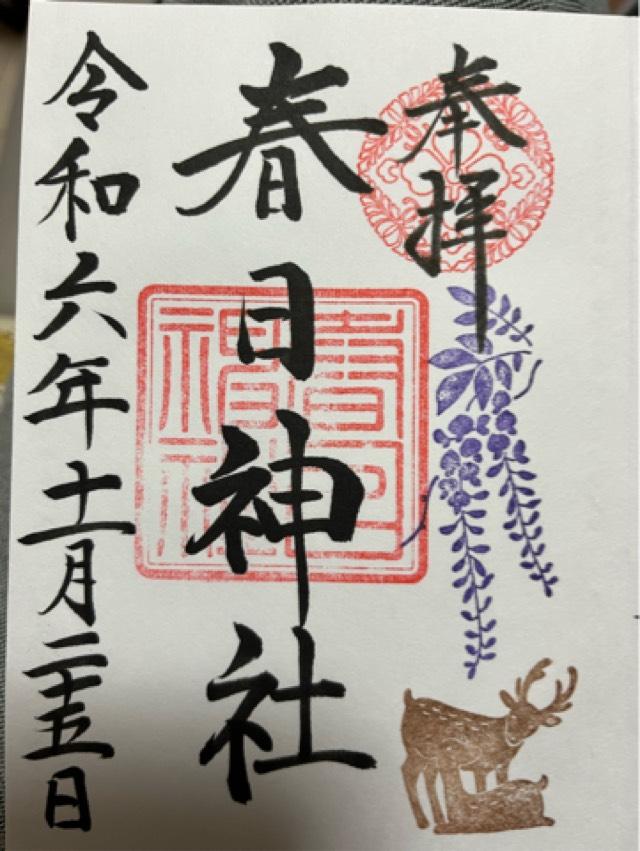 奉拝
春日神社
春日神社
令和六年十一月二十五日